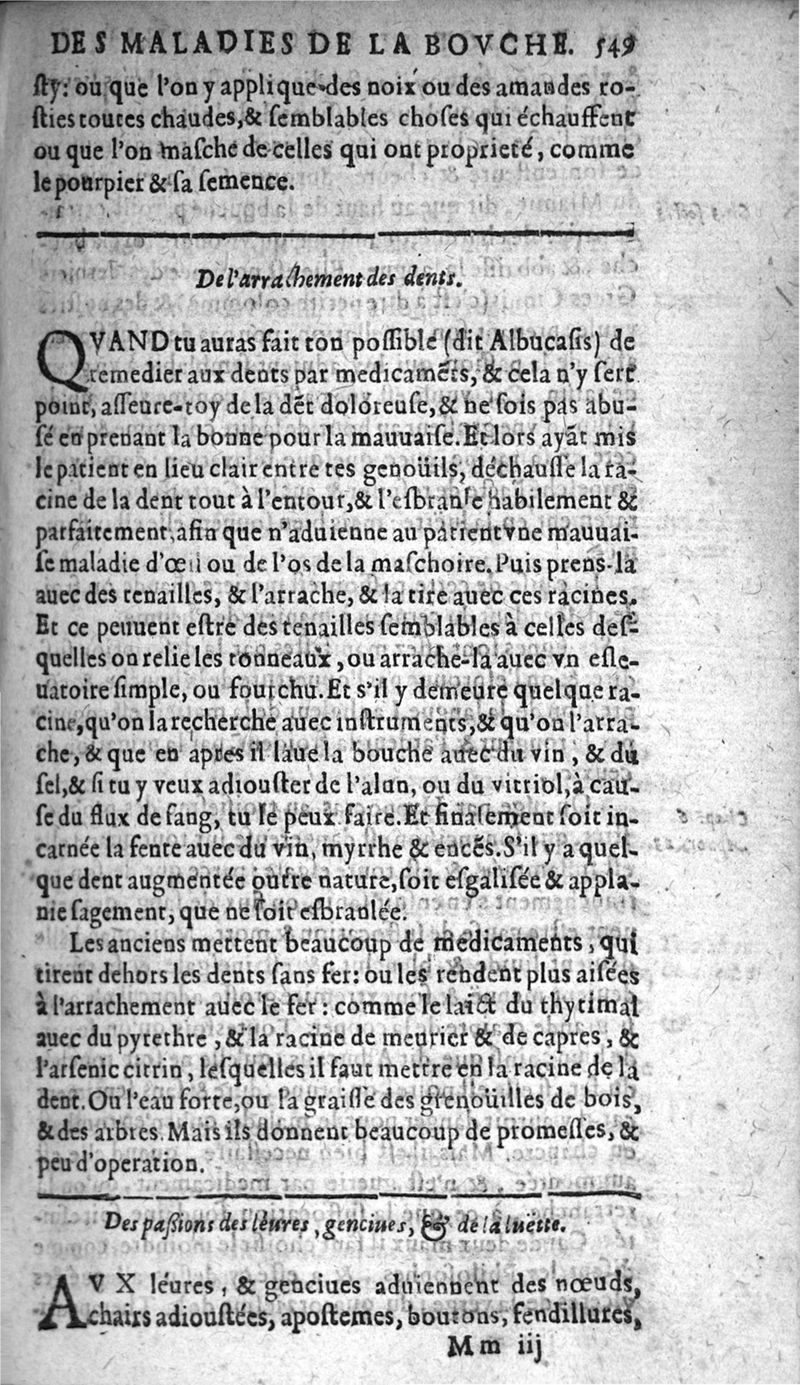 DES MALADIES DE LA BOVCHE. 549
ſty: ou que l'on y applique des noix ou des amandes ro-
ſties toutes chaudes, & ſemblables choſes qui échauffent
ou que l'on maſche de celles qui ont proprieté, comme
le pourpier & ſa ſemence.
De l'arrachement des dents.
QVAND tu auras fait ton poſſible (dit Albucaſis) de
remedier aux dents par medicamēts, & cela n'y ſert
point, aſſeure-toy de la dēt doloreuſe, & ne ſois pas abu-
ſé en prenant la bonne pour la mauuaiſe. Et lors ayāt mis
le patient en lieu clair entre tes genoüils, déchauſſe la ra-
cine de la dent tout à l'entour, & l'eſbranſle habilement &
parfaitement, afin que n'aduienne au patient vne mauuai-
ſe maladie d'œil ou de l'os de la maſchoire. Puis prens-la
auec des tenailles, & l'arrache, & la tire auec ces racines.
Et ce peuuent eſtre des tenailles ſemblables à celles deſ-
quelles on relie les tonneaux, ou arrache-la auec vn eſle-
uatoire ſimple, ou fourchu. Et s'il y demeure quelque ra-
cine, qu'on la recherche auec inſtruments, & qu'on l'arra-
che, & que en apres il laue la bouche auec du vin, & du
ſel, & ſi tu y veux adiouſter de l'alun, ou du vitriol, à cau-
ſe du flux de ſang, tu le peux faire. Et finalement ſoit in-
carnée la fente auec du vin, myrrhe & encēs. S'il y a quel-
que dent augmentée outre nature, ſoit eſgaliſée & appla-
nie ſagement, que ne ſoit eſbranlée.
Les anciens mettent beaucoup de medicaments, qui
tirent dehors les dents ſans fer: ou les rendent plus aiſées
à l'arrachement auec le fer: comme le laict du thytimal
auec du pyrethre, & la racine de meurier & de capres, &
l'arſenic citrin, leſquelles il faut mettre en la racine de la
dent. Ou l'eau forte, ou la graiſſe des grenoüilles de bois,
& des arbres. Mais ils donnent beaucoup de promeſſes, &
peu d'operation.
Des paſſions des léures, genciues, & de la luëtte.
AVX léures, & genciues aduiennent des nœuds,
chairs adiouſtées, apoſtemes, boutons, fendillures,
Mm iij